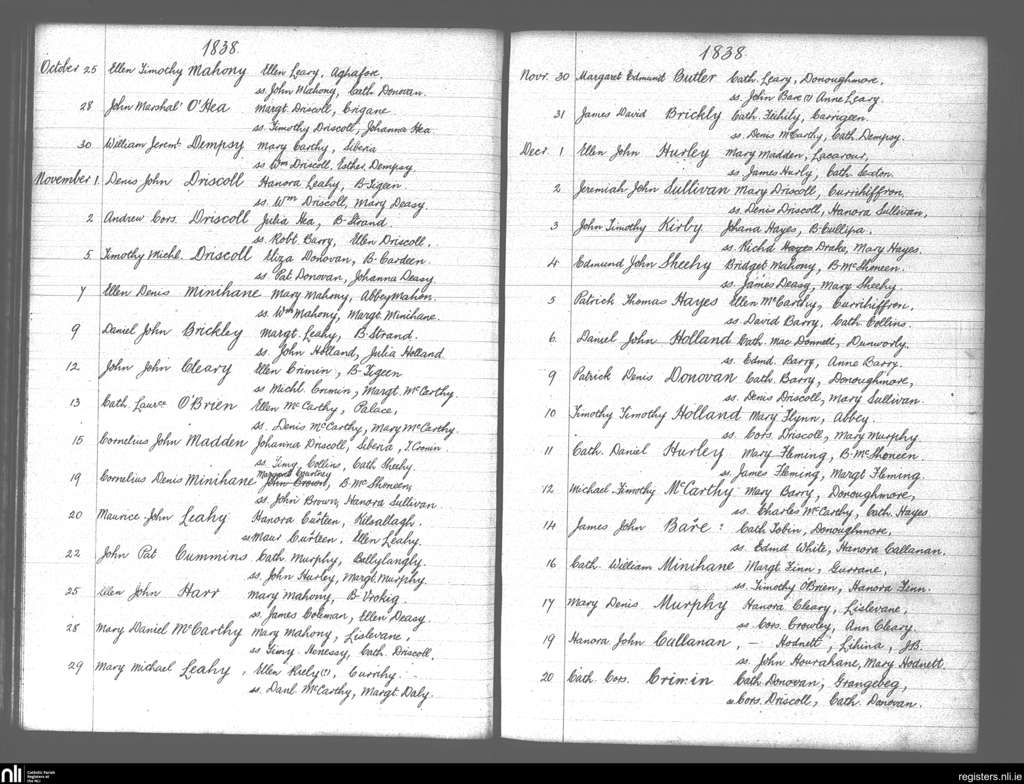 1838
October 25 Ellen Timothy Mahony Ellen Leary, Aghafore.
ss. John Mahony, Cath Donovan.
28 John Marshal' O'Hea Margt. Driscoll, Crigane
ss. Timothy Driscoll, Johanna Hea
30 William Jeremh. Dempsy Mary Carthy, Siberia
ss. Wm Driscoll, Esther Dempsy
November 1. Denis John Driscoll Hanora Leahy, B-Tigeen
ss. Wm Driscoll, Mary Deasy.
2 Andrew Cors. Driscoll Julia Hea, B-Strand.
ss. Robt. Barry, Ellen Driscoll.
5 Timothy Michl. Driscoll Eliza Donovan, B-Cardeen.
ss. Pat Donovan, Johanna Deasy
7 Ellen Denis Minihane Mary Mahony, AbbeyMahon.
ss. Wm Mahony, Margt Minihane.
9 Daniel John Brickley Margt. Leahy, B-Strand.
ss. John Holland, Julia Holland
12 John John Cleary Ellen Crimin, B-Tigeen
ss Michl. Crimin, Margt. McCarthy.
13 Cath. Laurce O'Brien Ellen McCarthy, Palace,
ss. Denis McCarthy, Mary McCarthy.
15 Cornelius John Madden Johanna Driscoll, Siberia, T. Cronin.
ss. Timy. Collins, Cath Sheehy.
Margaret Courtney
19 Cornelius Denis Minihane John Brown, B-McShoneen,
ss. John Brown, Hanora Sullivan.
20 Maurice John Leahy Hanora Curteen, Kilsallagh.
ss Maus Curteen, Ellen Leahy.
22 John Pat Cummins Cath. Murphy, Ballylangly.
ss. John Hurley, Margt. Murphy.
25 Ellen John Harr Mary Mahony, B-Vrokig.
ss. James Coleman, Ellen Deasy.
28 Mary Daniel McCarthy Mary Mahony, Lislevane,
ss Timy Henessy, Cath. Driscoll.
29 Mary Michael Leahy, Ellen Kiely(?), Currihy.
ss. Danl McCarthy, Margt Daly.
1838
Novr. 30 Margaret Edmund Butler Cath. Leary, Donoughmore.
ss. John Bare (?) Anne Leary.
31 James David Brickly Cath. Feihily, Carrigeen.
ss Denis McCarthy, Cath. Dempsy.
Decr. 1 Ellen John Hurley Mary Madden, Lacarour,
ss. James Hurly, Cath Sexton.
2 Jeremiah John Sullivan Mary Driscoll, Currihiffron.
ss. Denis Driscoll, Hanora Sullivan.
3 John Timothy Kirby Johana Hayes, B-Cullipa.
ss. Richd Hayes Drake, Mary Hayes.
4 Edmund John Sheehy Bridget Mahony, B-McShoneen.
ss. James Deasy, Mary Sheehy.
5 Patrick Thomas Hayes Ellen McCarthy, Currihiffron.
ss David Barry, Cath. Collins.
6. Daniel John Holland Cath. Mac Donnell, Dunworly.
ss. Edmd. Barry, Anne Barry.
9 Patrick Denis Donovan Cath. Barry, Donoughmore,
ss. Denis Driscoll, Mary Sullivan.
10 Timothy Timothy Holland Mary Flynn, Abbey.
ss. Cors. Driscoll, Mary Murphy.
11 Cath. Daniel Hurley Mary Fleming, B-McShoneen.
ss. James Fleming, Margt Fleming.
12 Michael Timothy McCarthy Mary Barry, Donoughmore,
ss. Charles McCarthy, Cath. Hayes
14 James John Bare? Cath. Tobin, Donoughmore.
ss. Edmd White, Hanora Callanan.
16 Cath. William Minihane Margt Finn, Gurrane,
ss. Timothy O'Brien, Hanora Finn.
17 Mary Denis Murphy Hanora Cleary, Lislevane,
ss. Cors. Crowley, Ann Cleary.
19 Hanora John Callanan, — Hodnett, Lihina, JB.
ss. John Hourahane, Mary Hodnett.
20 Cath. Cors. Crimin Cath Donovan, Grangebeg,
ss Cors. Driscoll, Cath. Donovan.
nli Catholic Parish Registers at the NLI
registers.nli.ie